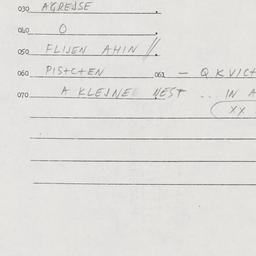 030 AGREJSE
040 O
050 FLIJEN AHIN //
060 PISTCTEN 061 — QKVICT
070 A KLEJNE NEST ... IN A
XX